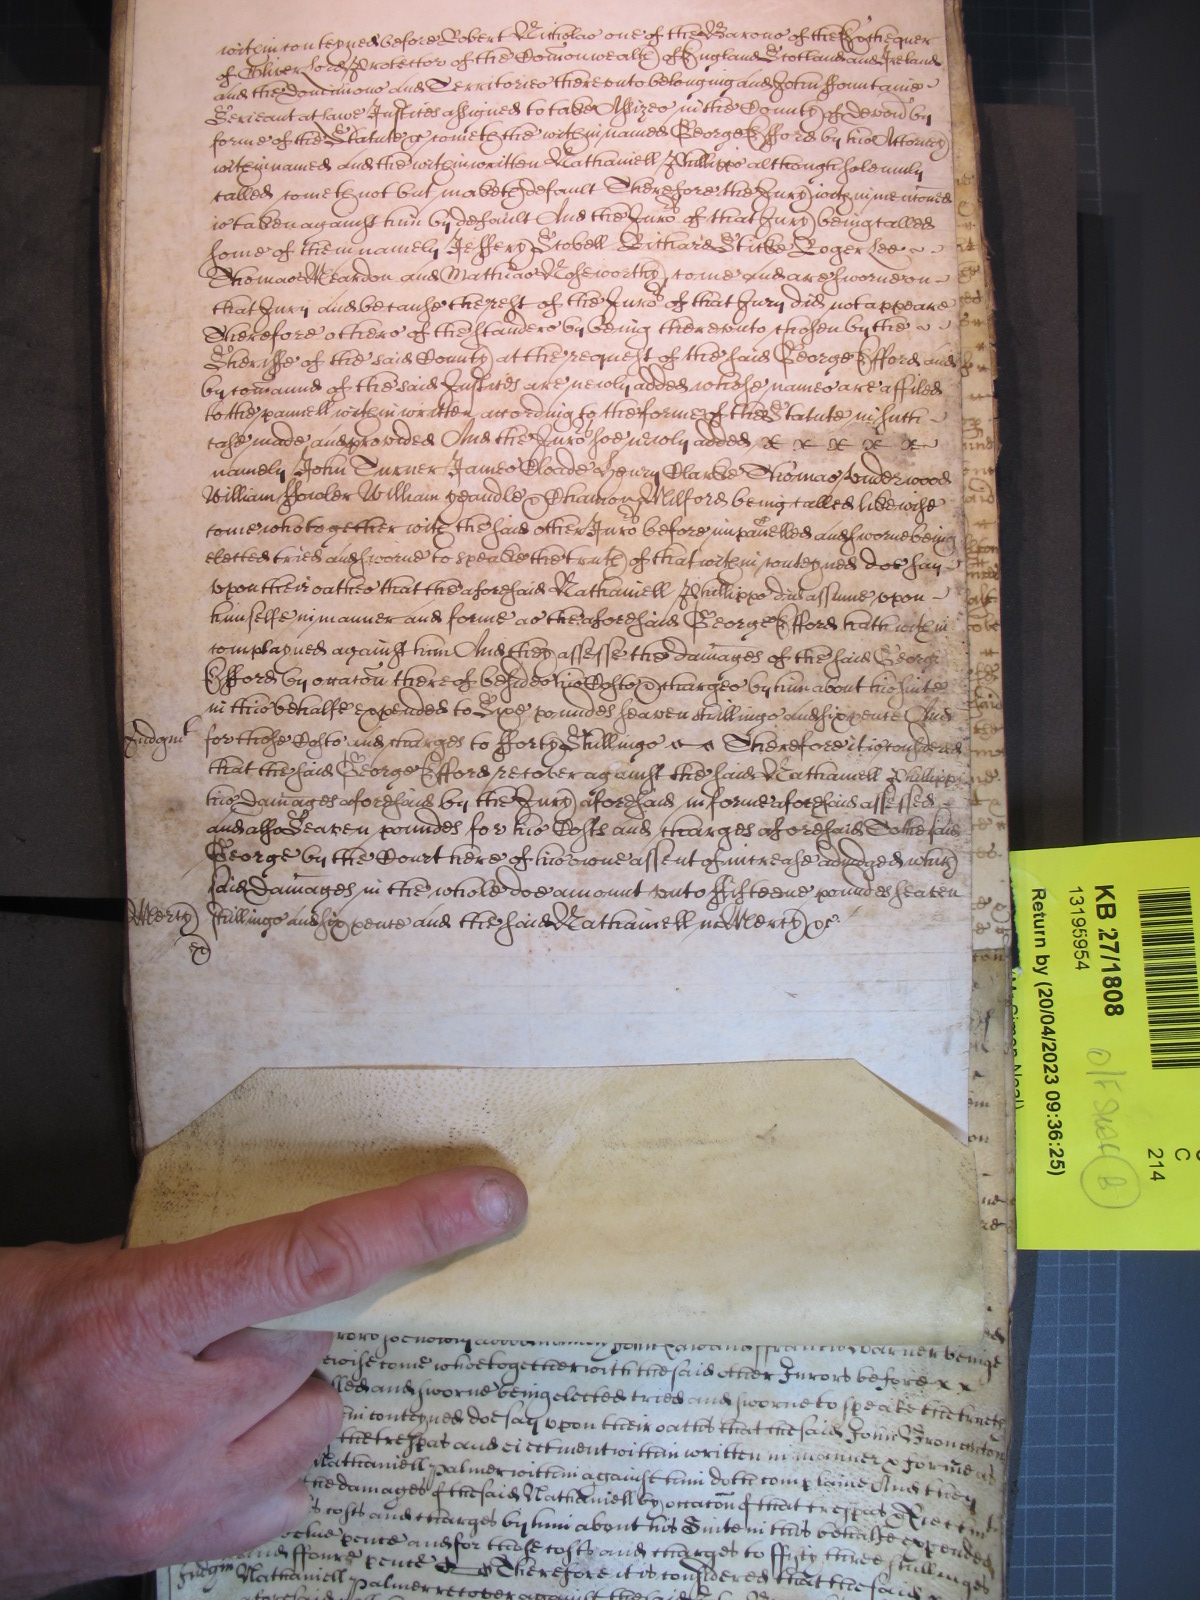 within conteyned before Robert Nicholas one of the Barons of the Exchequer
of Oliver Lord Protector of the Comonwealth of England Scotland and Ireland
and the Dominions and Territories thereunto belonging and John ffountaine
Serieant at lawe Justices assigned to take Assizes in the County of Devon by
forme of the Statute &c cometh the within named George Efford by his Attorney
within named and the within written Nathaniell Phillipps although solemnly
called cometh not but maketh default Therefore the Jury within menconed
is taken against him by default And the Jurors of that Jury being called
some of them namely Jeffery Stobell Richard Sticke Roger Lee
Thomas Reardon and Mathias Noseworthy come and are sworne on
that Jury and because the rest of the Jurors of that Jury did not appeare
Therefore others of the standers by being thereunto chosen by the
Sheriffe of the said County at the request of the said George Efford and
by comaund of the said Justices are newly added whose names are affiled
to the panell within written according to the forme of the Statute in such
case made and provided And the Jurors soe newly added x x x x x
namely John Turner James Cloade Henry Clarke Thomas Underwood
William ffowler William Milford being called likewise
come who together with the said other Jurors before impanelled and sworne being
elected tried and sworne to speake the truth of that within conteyned doe say
upon their oathes that the aforesaid Nathaniell Phillipps did assume upon
himselfe in manner and forme as the aforesaid George Efford hath within
complayned against him And they assesse the damages of the said George
Efford by occacon thereof besides his Costs & charges by him about his suite
in this behalfe expended to Sixe poundes seaven shillings and six pence And
for those Costs and charges to fforty Shillings Therefore it is considered
Judgmt
that the said George Efford recover against the said Nathaniell Phillipps
his damages aforesaid by the Jury aforesaid in forme aforesaid assessed
and also Seaven poundes for his Costs and charges aforesaid To the said
George by the Court here of his owne assent of increase adiudged which
said Damages in the whole doe amount unto ffifteene poundes seaven
Mercy
shillings and six pence and the said Nathaniell in Mercy &c
KB 27/1808
13195954
Return by (20/04/2023 09:36:25)
C
214
rors soe newly ffrancis Warner being
wise come whoe together with the said other Jurors before x x
lled and sworne being elected tried and sworne to speake the truth
in conteyned doe say upon their oaths that the said John
the trespas and eiectment within written in manner & forme as
Nathaniell Palmer within against him doth complaine And they
the damages of the said Nathaniell by occacon of that trespas & Eiectmt
costs and charges by him about his Suite in this behalfe expended
pence and for those costs and charges to ffifty three shillings
and ffoure pence Therefore it is considered that the said
Judgm
Nathaniell Palmer recover against the said